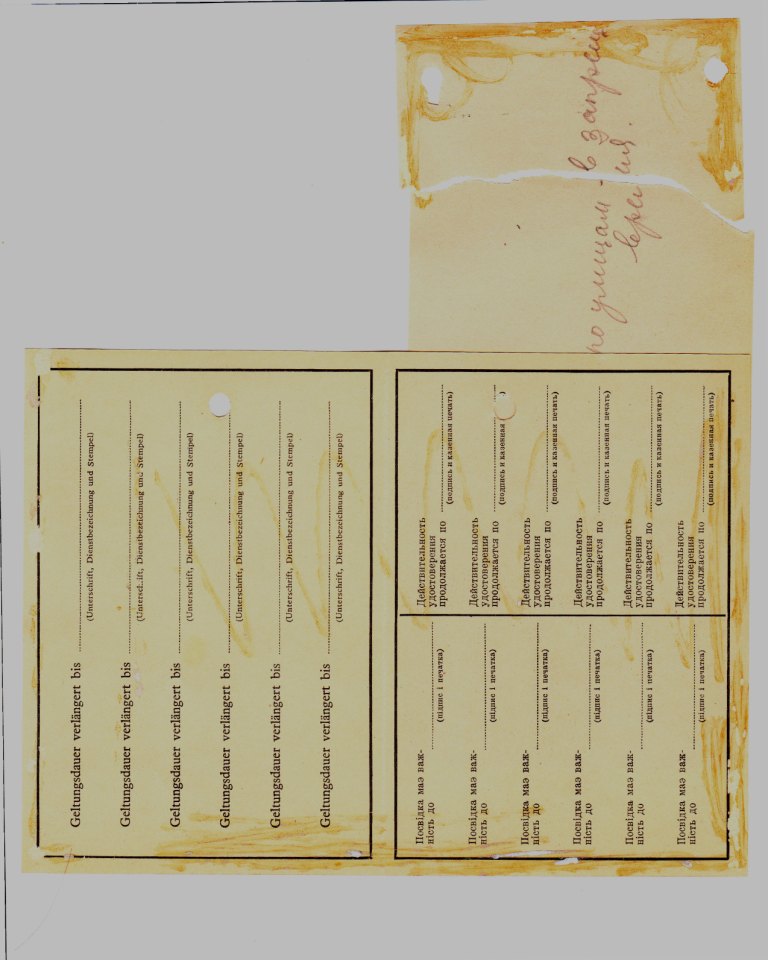 Geltungsdauer verlängert bis
(Unterschrift, Dienstbezeichnung und Stempel)
Geltungsdauer verlängert bis
(Unterschrift, Dienstbezeichnung und Stempel)
Geltungsdauer verlängert bis
(Unterschrift, Dienstbezeichnung und Stempel)
Geltungsdauer verlängert bis
(Unterschrift, Dienstbezeichnung und Stempel)
Geltungsdauer verlängert bis
(Unterschrift, Dienstbezeichnung und Stempel)
Geltungsdauer verlängert bis
(Unterschrift, Dienstbezeichnung und Stempel)
Посвідка маэ важ-
ність до
(підпис і печатка)
Посвідка маэ важ-
ність до
(підпис і печатка)
Посвідка маэ важ-
ність до
(підпис і печатка)
Посвідка маэ важ-
ність до
(підпис і печатка)
Посвідка маэ важ-
ність до
(підпис і печатка)
Посвідка маэ важ-
ність до
(підпис і печатка)
Действительность
удостоверения
продолжается по
(подпись и казенная печать)
Действительность
удостоверения
продолжается по
(подпись и казенная )
Действительность
удостоверения
продолжается по
(подпись и казенная печать)
Действительность
удостоверения
продолжается по
(подпись и казенная печать)
Действительность
удостоверения
продолжается по
(подпись и казенная печать)
Действительность
удостоверения
продолжается по
(подпись и казенная печать)
по улицам - в запрещ